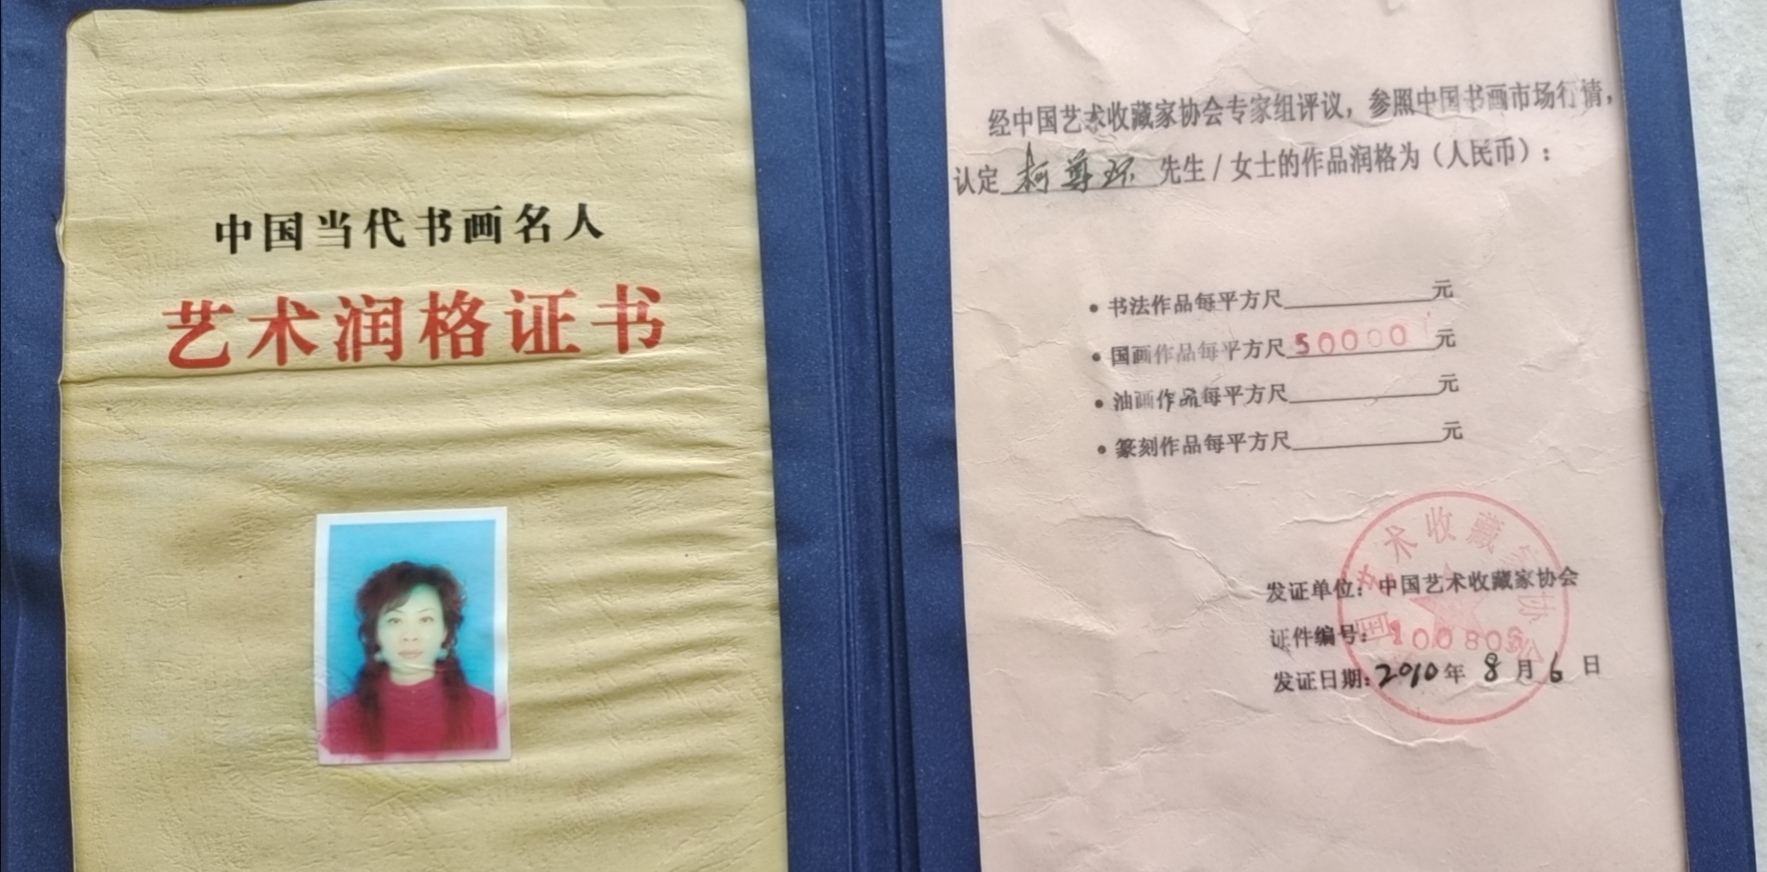 中国当代书画名人
艺术润格证书
经中国艺术收藏家协会专家组评议，参照中国书画市场行情，
认定 柯尊环 先生/女士的作品润格为（人民币）：
• 书法作品每平方尺________元
• 国画作品每平方尺50000元
• 油画作品每平方尺________元
• 篆刻作品每平方尺________元
发证单位：中国艺术收藏家协会
证件编号：100805
发证日期：2010年8月6日
国艺术收藏家协会